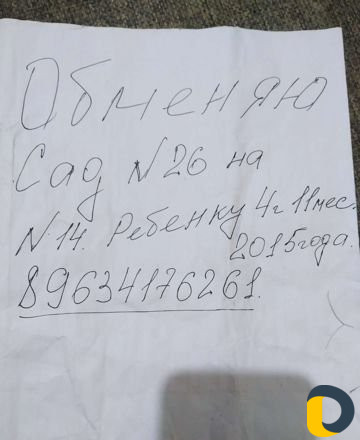 Обменяю
Сад №26 на
№14. Ребенку 4г 11мес.
2015года.
89634176261.